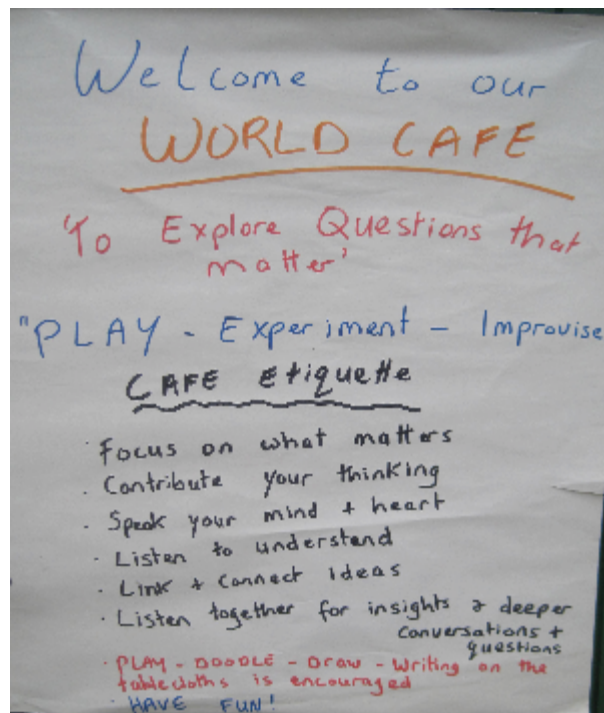 Welcome to our
WORLD CAFE
'To Explore Questions that
matter'
"PLAY - Experiment - Improvise
CAFE Etiquette
· Focus on what matters
· Contribute your thinking
· Speak your mind + heart
· Listen to understand
· Link + Connect ideas
· Listen together for insights & deeper
conversations +
questions
· PLAY - DOODLE - Draw - Writing on the
tablecloths is encouraged
· HAVE FUN!